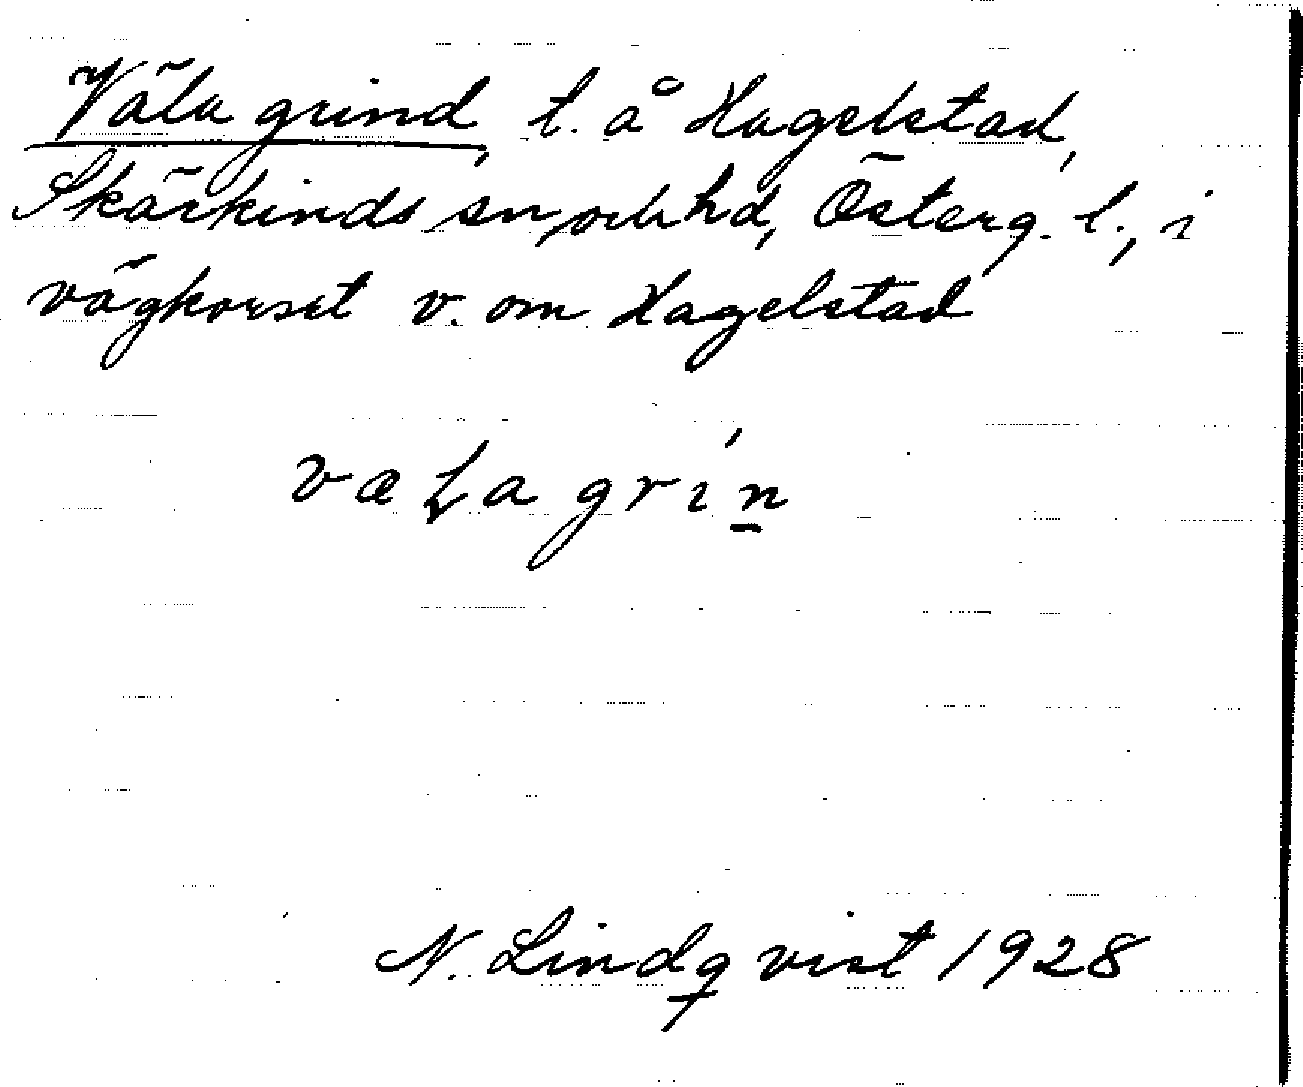 Väla grind, t. å Hagelstad,
Skärkinds sn och hd, Österg. l., i
vägkorset v. om Hagelstad
væLa grin
N. Lindqvist 1928